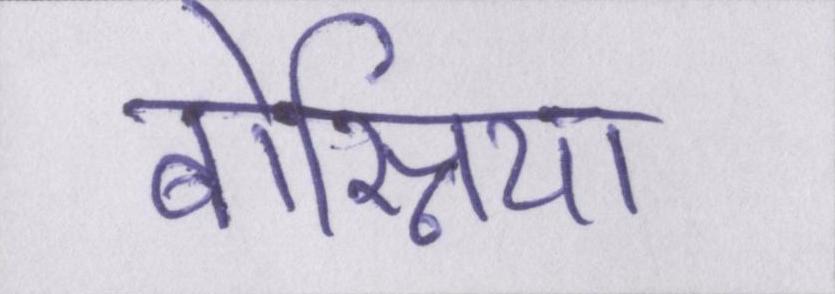 बोस्निया